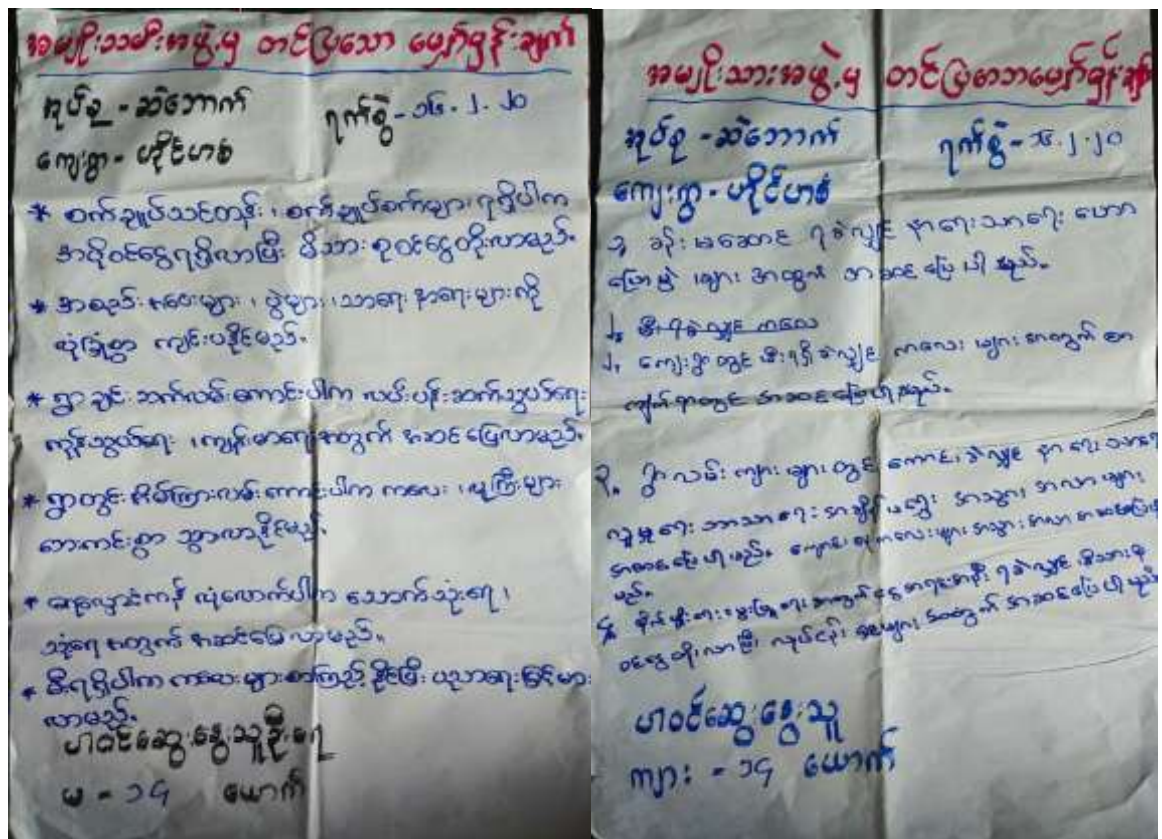 အမျိုးသမီးအဖွဲ့မှ တင်ပြသော မျှော်မှန်းချက်
အုပ်စု - ဆဲဘောက်
ရက်စွဲ - ၁၆.၂.၂၀
ကျေးရွာ - ဟိုင်ဟစ်
* စက်ချုပ်သင်တန်း၊ စက်ချုပ်စက်များ ရရှိပါက
အပိုဝင်ငွေရရှိလာပြီး မိသားစုဝင်ငွေတိုးလာမည်.
* အစည်းအဝေးများ၊ ပွဲများ၊ သာရေး နာရေးများကို
လုံခြုံစွာ ကျင်းပနိုင်မည်.
* ရွာချင်းဆက်လမ်းကောင်းပါက လမ်းပန်းဆက်သွယ်ရေး
ကုန်သွယ်ရေး၊ ကျန်းမာရေးအတွက် အဆင်ပြေလာမည်.
* ရွာတွင်းလမ်းကောင်းပါက ကလေး၊ လူကြီးများ
ဘေးကင်းစွာ သွားလာနိုင်မည်.
* ရေလှောင်ကန် လုံလောက်ပါက သောက်သုံးရေ၊
သုံးရေအတွက် အဆင်ပြေလာမည်.
* မီးရရှိပါက ကလေးများစာကြည့်နိုင်ပြီး ပညာရေးမြင့်မား
လာမည်.
ပါဝင်ဆွေးနွေးသူဦးရေ
မ - ၁၄ ယောက်
အမျိုးသားအဖွဲ့မှ တင်ပြသောမျှော်မှန်းချက်
အုပ်စု - ဆဲဘောက်
ရက်စွဲ - ၁၆.၂.၂၀
ကျေးရွာ - ဟိုင်ဟစ်
၁, ခန်းမဆောင် ရခဲ့လျှင် နာရေးသာရေး ဟော
ပြောပွဲ များ အတွက် အဆင်ပြေပါမည်.
၂, မီးရခဲ့လျှင် ကလေး
၂, ကျေးရွာတွင် မီးရရှိခဲ့လျှင် ကလေးများအတွက် စာ
ကျက်ရာတွင် အဆင်ပြေပါမည်.
၃, ရွာလမ်း များတွင် ကောင်းခဲ့လျှင် နာရေးသာရေး
လူမှုရေး ဘာသာရေး အချိန်မရွေး အသွားအလာများ
အဆင်ပြေပါမည်. ကျောင်း ကလေးများ အသွားအလာ အဆင်ပြေ
မည်.
၄, စိုက်ပျိုးရေး မွေးမြူရေး အတွက် ငွေအရင်းအနှီး ရခဲ့လျှင် မိသားစု
ဝင်ငွေတိုးလာပြီး လုပ်ငန်း အတွက် အဆင်ပြေပါမည်
ပါဝင်ဆွေးနွေးသူ
ကျား - ၁၄ ယောက်